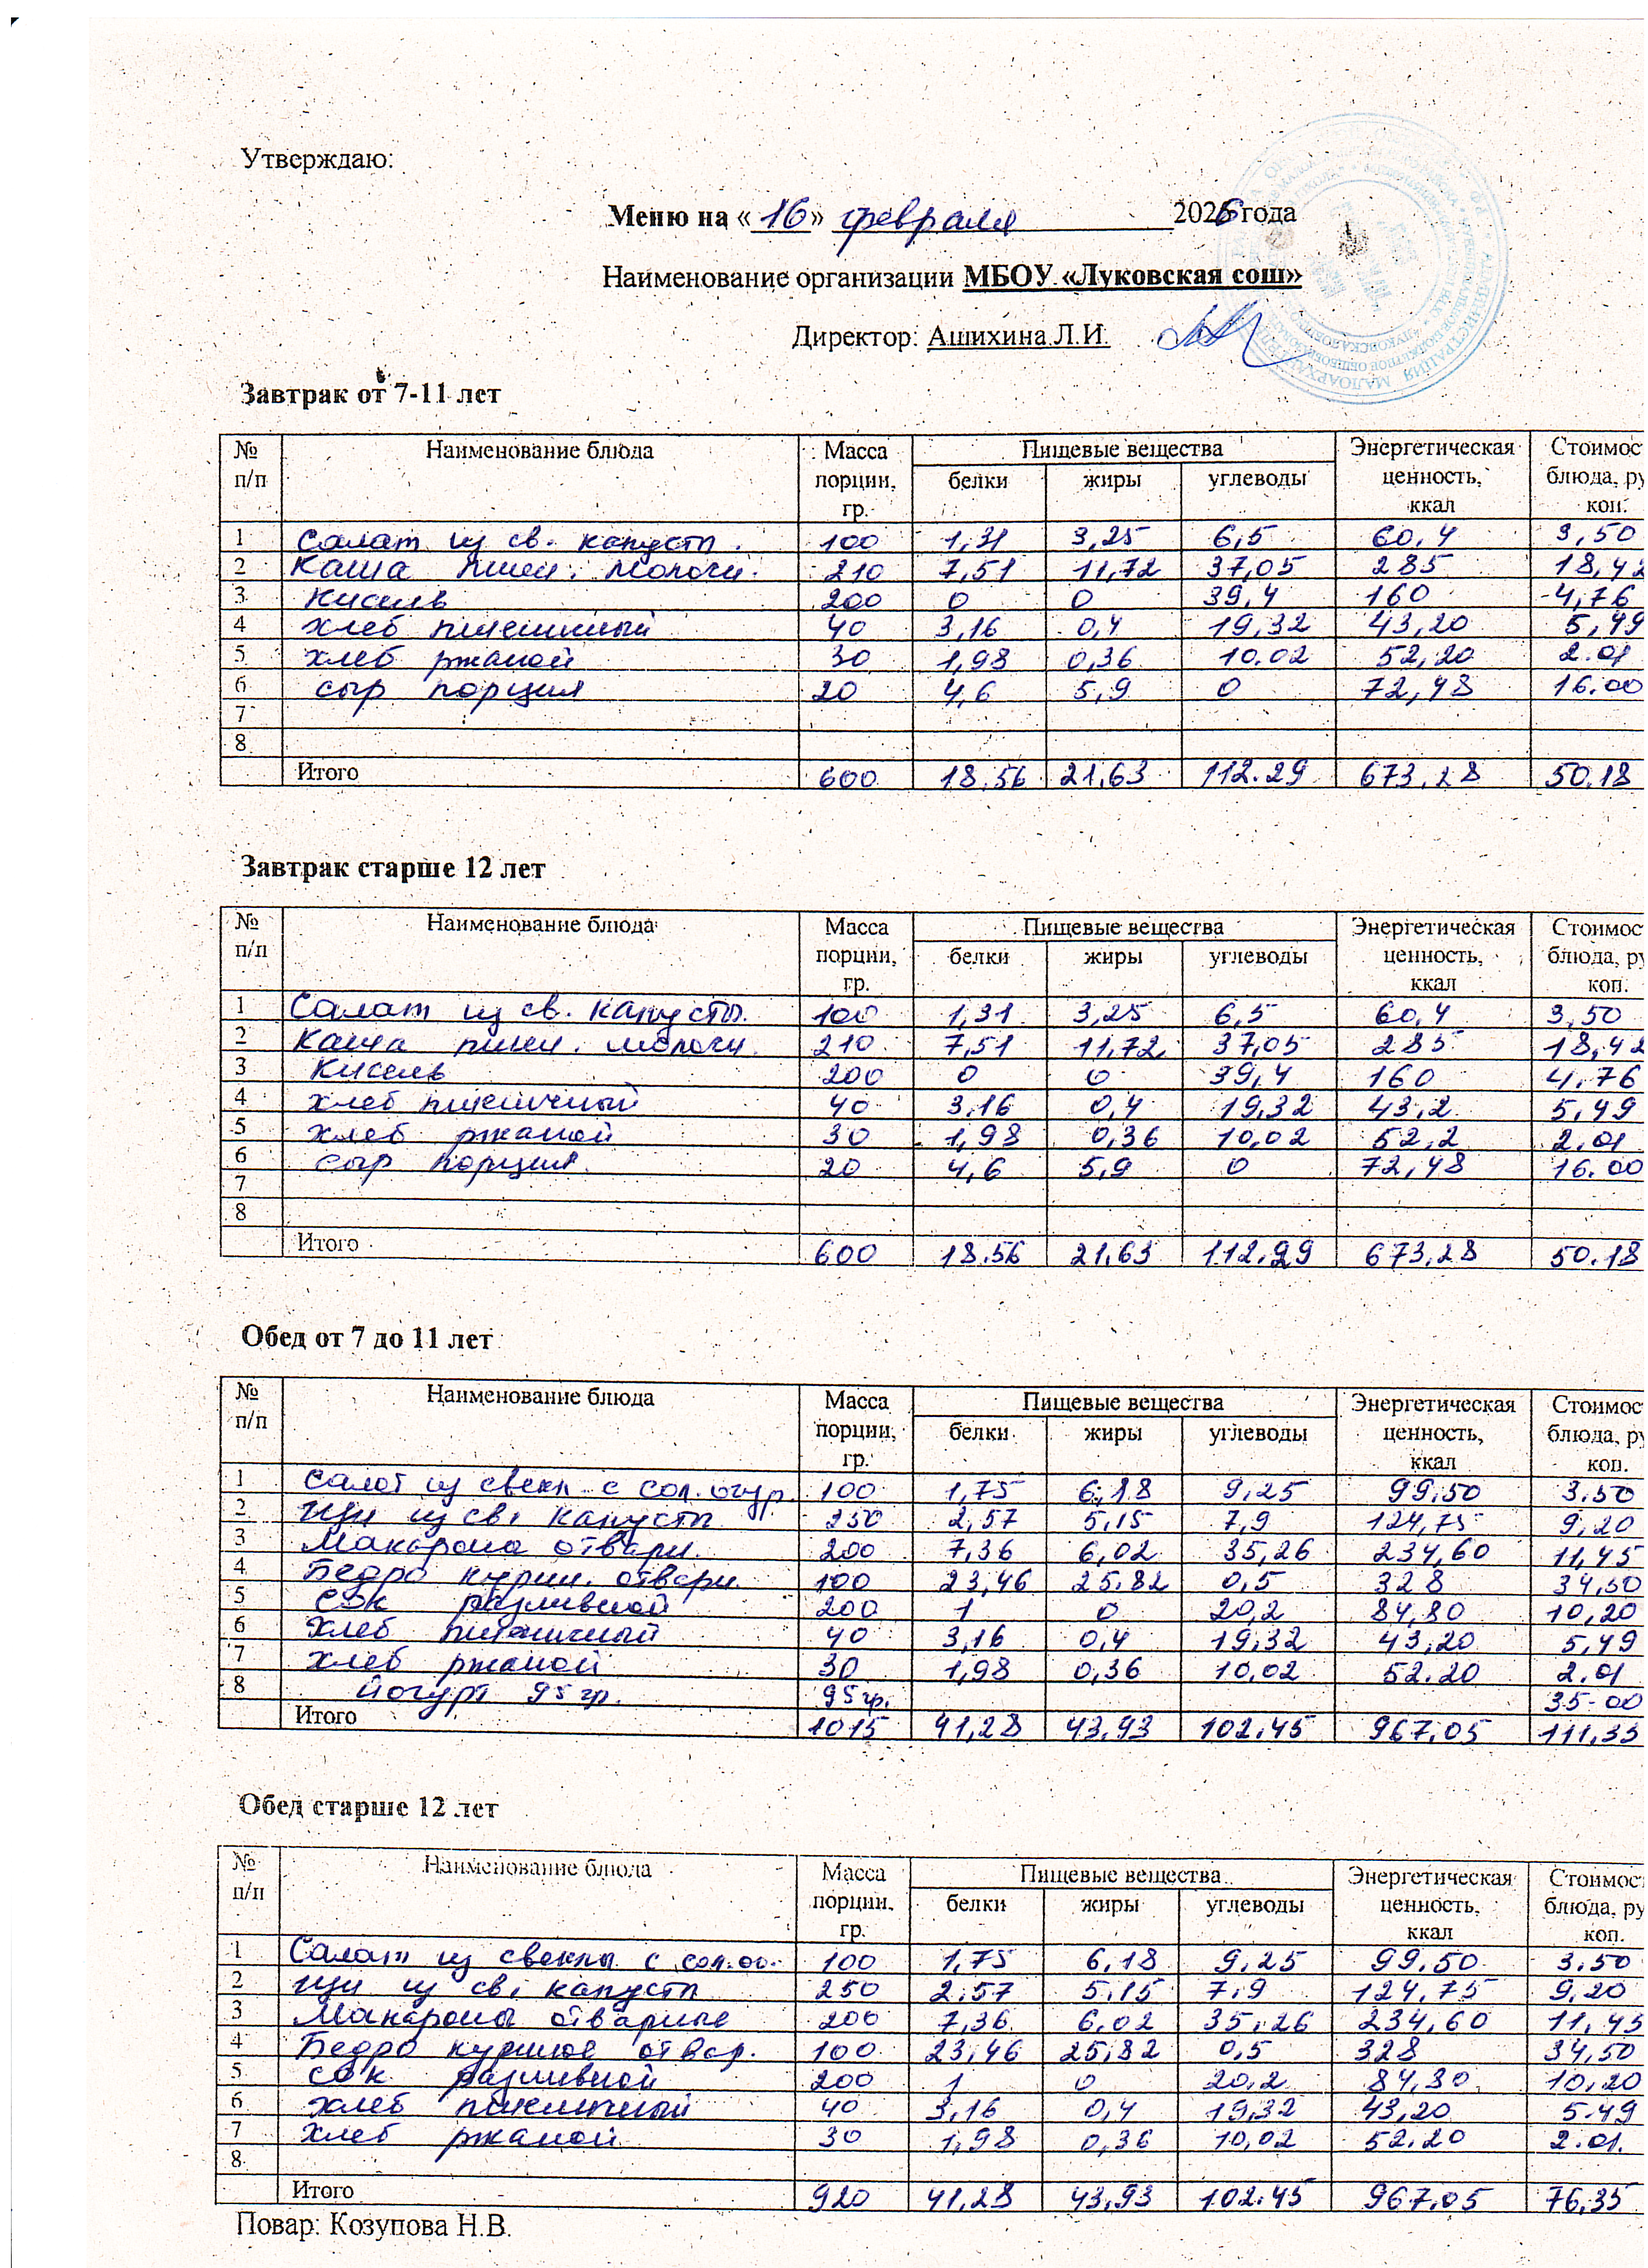 Утверждаю:
Меню на «16» февраля 2026 года
Наименование организации МБОУ «Луковская сош»
Директор: Ашихина Л.И.
Завтрак от 7-11 лет
№ п/п Наименование блюда Масса порции, гр. Пищевые вещества белки жиры углеводы Энергетическая ценность, ккал Стоимос блюда, ру коп.
1 Салат из св. капусты. 100 1,31 3,25 6,5 60,4 3,50
2 Каша пшен. молочн. 210 7,51 11,72 37,05 285 18,42
3 Кисель 200 0 0 39,4 160 4,76
4 хлеб пшеничный 40 3,16 0,4 19,32 43,20 5,49
5 хлеб ржаной 30 1,98 0,36 10.02 52,20 2.01
6 сыр порция 20 4,6 5,9 0 72,48 16.00
7
8
Итого 600 18.56 21,63 112.29 673,28 50.18
Завтрак старше 12 лет
№ п/п Наименование блюда Масса порции, гр. Пищевые вещества белки жиры углеводы Энергетическая ценность, ккал Стоимос блюда, ру коп.
1 Салат из св. капусты. 100 1,31 3,25 6,5 60,4 3,50
2 Каша пшен. молочн. 210 7,51 11,72 37,05 285 18,42
3 Кисель 200 0 0 39,4 160 4.76
4 хлеб пшеничный 40 3,16 0,4 19,32 43,2 5,49
5 хлеб ржаной 30 1,98 0,36 10,02 52,2 2.01
6 сыр порция 20 4,6 5,9 0 72,48 16.00
7
8
Итого 600 18.56 21,63 112,29 673,28 50.18
Обед от 7 до 11 лет
№ п/п Наименование блюда Масса порции, гр. Пищевые вещества белки жиры углеводы Энергетическая ценность, ккал Стоимос блюда, ру коп.
1 Салат из свекл с сол. огур. 100 1,75 6,18 9,25 99,50 3.50
2 Щи из св. капусты 250 2,57 5,15 7,9 124,75 9,20
3 Макароны отварн. 200 7,36 6,02 35,26 234,60 11,45
4 Бедро курин. отварн. 100 23,46 25.82 0,5 328 34,50
5 Сок разливной 200 1 0 20,2 84,80 10,20
6 Хлеб пшеничный 40 3,16 0,4 19,32 43,20 5,49
7 Хлеб ржаной 30 1,98 0,36 10,02 52.20 2.01
8 йогурт 95 гр. 95 гр. 35-00
Итого 1015 41,28 43,93 102,45 967,05 111,35
Обед старше 12 лет
№ п/п Наименование блюда Масса порции, гр. Пищевые вещества белки жиры углеводы Энергетическая ценность, ккал Стоимос блюда, ру коп.
1 Салат из свеклы с сол.ог. 100 1,75 6,18 9,25 99,50 3.50
2 Щи из св. капусты 250 2,57 5,15 7,9 124,75 9,20
3 Макароны отварные 200 7,36 6,02 35,26 234,60 11,45
4 Бедро куриное отвар. 100 23,46 25,82 0,5 328 34,50
5 сок разливной 200 1 0 20,2 84,80 10,20
6 хлеб пшеничный 40 3,16 0,4 19,32 43,20 5.49
7 хлеб ржаной 30 1,98 0,36 10,02 52.20 2.01.
8
Итого 920 41,28 43,93 102.45 967,05 76,35
Повар: Козупова Н.В.